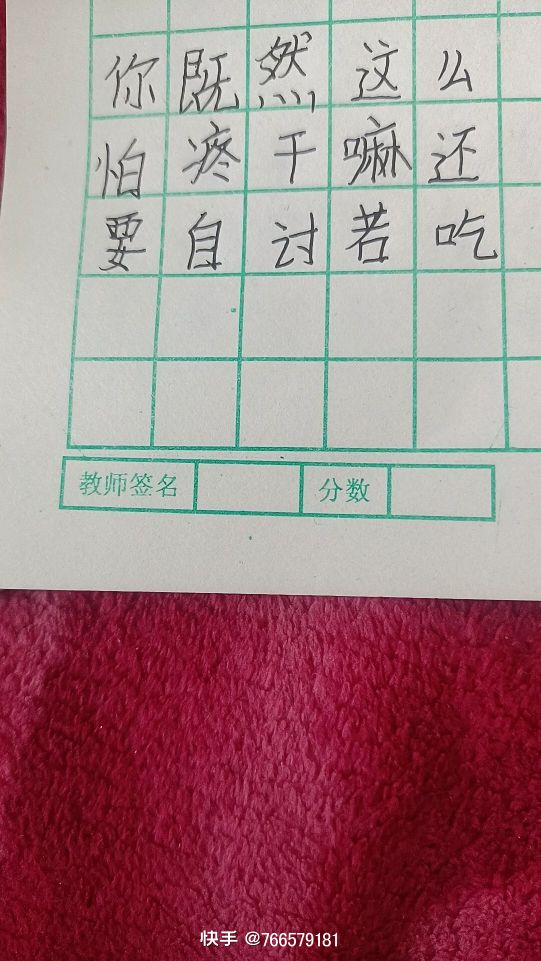 你既然这么
怕疼干嘛还
要自讨若吃
教师签名 分数
快手 @766579181